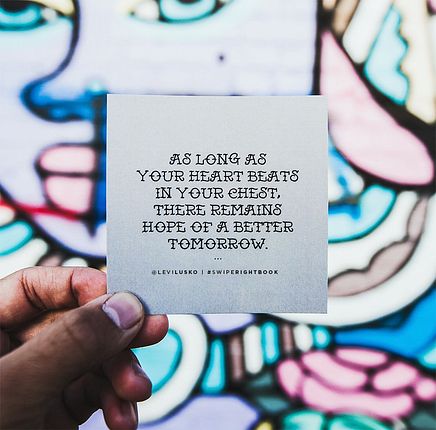 AS LONG AS
YOUR HEART BEATS
IN YOUR CHEST,
THERE REMAINS
HOPE OF A BETTER
TOMORROW.
...
@LEVILUSKO | #SWIPERIGHTBOOK